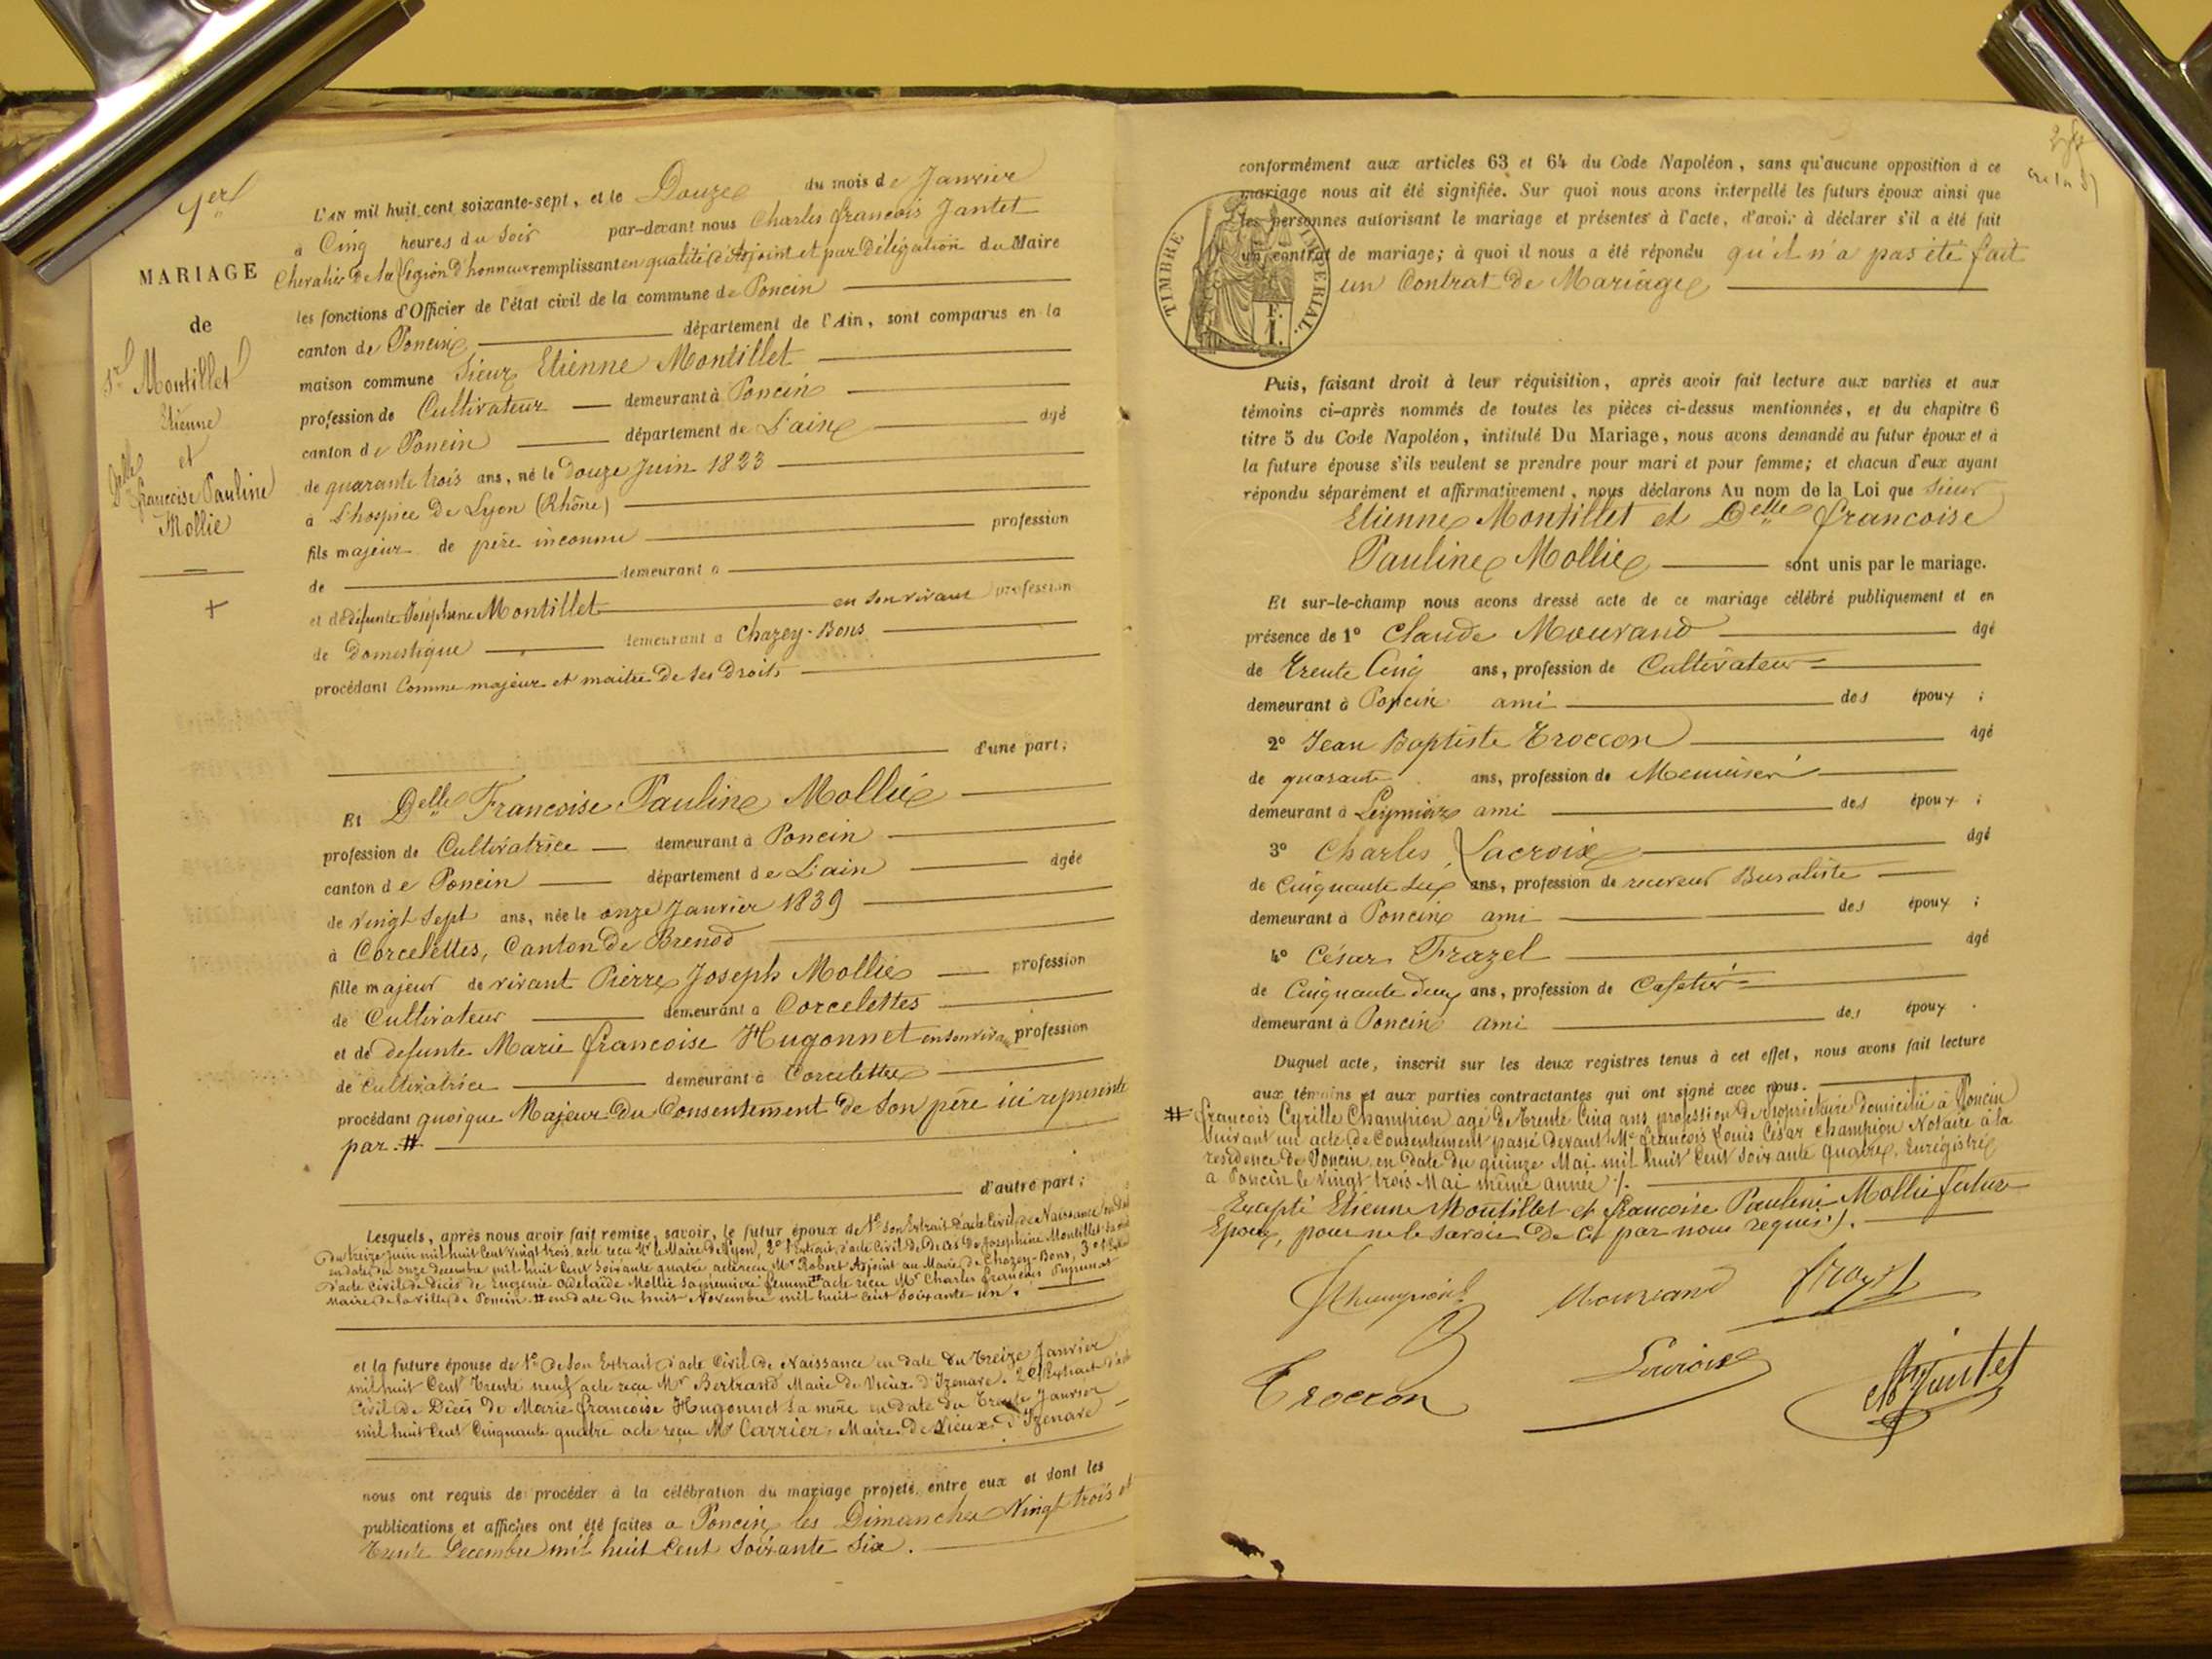 1er
MARIAGE
de
Sr Montillet
Etienne
et
Delle
francoise Pauline
Mollie
L'AN mil huit cent soixante-sept, et le Douze du mois de Janvier
à Cinq heures du Soir par-devant nous Charles francois Jantet
Chevalier De la Légion d'honneur remplissant en qualité d'Adjoint et par Délégation du Maire
les fonctions d'Officier de l'état civil de la commune de Poncin
canton de Poncin département de l'Ain, sont comparus en la
maison commune Sieur Etienne Montillet
profession de Cultivateur demeurant à Poncin
canton de Poncin département de L'ain âgé
de quarante trois ans, né le Douze Juin 1823
à L'hospice De Lyon (Rhône)
fils majeur de père inconnu profession
de demeurant à
et de défunte Joséphine Montillet en son vivant profession
de Domestique demeurant à Chazey-Bons
procédant Comme majeur et maitre De ses Droits
d'une part;
Et Delle Francoise Pauline Mollie
profession de Cultivatrice demeurant à Poncin
canton de Poncin département de L'ain âgée
de vingt Sept ans, née le onze Janvier 1839
à Corcelettes, Canton De Brenod
fille majeur de vivant Pierre Joseph Mollie profession
de Cultivateur demeurant à Corcelettes
et de defunte Marie francoise Hugonnet en son vivant profession
de Cultivatrice demeurant à Corcelettes
procédant quoique Majeur Du Consentement De Son père ici représenté
par #
d'autre part;
Lesquels, après nous avoir fait remise, savoir, le futur époux de 1° Son Extrait d'acte Civil De Naissance en date
Du treize Juin mil huit Cent vingt trois, acte reçu Mr le Maire De Lyon, 2° l'Extrait d'acte Civil De Décès De Josephine Montillet Sa mère
en date du onze decembre mil huit Cent Soixante quatre acte reçu Mr Robert Adjoint au Maire De Chazey-Bons, 3° l'Extrait
D'acte Civil De décès de Eugénie Adelaide Mollie Sa première femme # acte reçu Mr Charles francois
Maire De la Ville De Poncin. # en date du huit Novembre mil huit Cent Soixante un.
et la future épouse de 1° De Son Extrait d'acte Civil De Naissance en date Du treize Janvier
mil huit Cent Trente neuf acte reçu Mr Bertrand Maire De Vieux D'Izenave. 2° l'Extrait d'acte
Civil De Décès De Marie francoise Hugonnet Sa mère en date Du Trente Janvier
mil huit Cent Cinquante quatre acte reçu Mr Carrier, Maire De Vieux D'Izenave
nous ont requis de procéder à la célébration du mariage projeté entre eux et dont les
publications et affiches ont été faites à Poncin les Dimanches Vingt trois et
trente Decembre mil huit Cent Soixante Six.
conformément aux articles 63 et 64 du Code Napoléon, sans qu'aucune opposition à ce
mariage nous ait été signifiée. Sur quoi nous avons interpellé les futurs époux ainsi que
les personnes autorisant le mariage et présentes à l'acte, d'avoir à déclarer s'il a été fait
un contrat de mariage; à quoi il nous a été répondu qu'il n'a pas été fait
un Contrat De Mariage
TIMBRE IMPÉRIAL.
F.
I.
Puis, faisant droit à leur réquisition, après avoir fait lecture aux parties et aux
témoins ci-après nommés de toutes les pièces ci-dessus mentionnées, et du chapitre 6
titre 5 du Code Napoléon, intitulé Du Mariage, nous avons demandé au futur époux et à
la future épouse s'ils veulent se prendre pour mari et pour femme; et chacun d'eux ayant
répondu séparément et affirmativement, nous déclarons Au nom de la Loi que Sieur
Etienne Montillet et Delle francoise
Pauline Mollie sont unis par le mariage.
Et sur-le-champ nous avons dressé acte de ce mariage célébré publiquement et en
présence de 1° Claude Mourand âgé
de Trente Cinq ans, profession de Cultivateur
demeurant à Poncin ami des époux ;
2° Jean Baptiste Troccon âgé
de quarante ans, profession de Menuisier
demeurant à ami des époux ;
3° Charles Lacroix âgé
de Cinquante Six ans, profession de receveur Buraliste
demeurant à Poncin ami des époux ;
4° César Frazel âgé
de Cinquante Deux ans, profession de Cafetier
demeurant à Poncin ami des époux .
Duquel acte, inscrit sur les deux registres tenus à cet effet, nous avons fait lecture
aux témoins et aux parties contractantes qui ont signé avec nous.
# francois Cyrille Champion agé De trente Cinq ans profession De propriétaire Domicilié à Poncin
Suivant un acte De Consentement passé Devant Me francois Louis César Champion Notaire à la
residence De Poncin en date du quinze Mai mil huit Cent Soixante quatre, Enregistré
à Poncin le vingt trois Mai même année /.
Excepté Etienne Montillet et francoise Pauline Mollie futur
Epoux, pour ne le Savoir De Ce par nous requis /.
Champion Mourand Frazel
Troccon Lacroix Ch Jantet